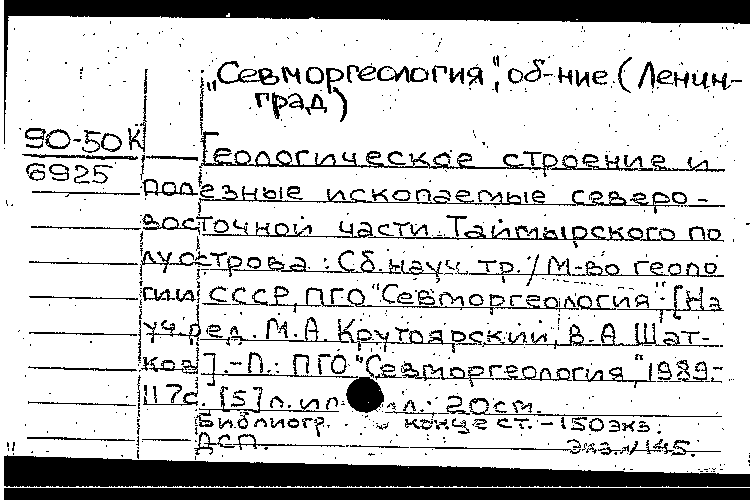 „Севморгеология", об-ние (Ленин-
град)
90-50К
6925
Геологическое строение и
полезные ископаемые северо-
восточной части Таймырского по
луострова : Сб. науч. тр. / М-во геоло
гии СССР, ПГО "Севморгеология"; [На
уч. ред. М.А. Крутоярский, В.А Шат-
ков]. -Л.: ПГО "Севморгеология", 1989.-
117с. [5] л. ил. ; 20см.
Библиогр. конце ст. - 150экз.
ДСП. Экз.N 145.